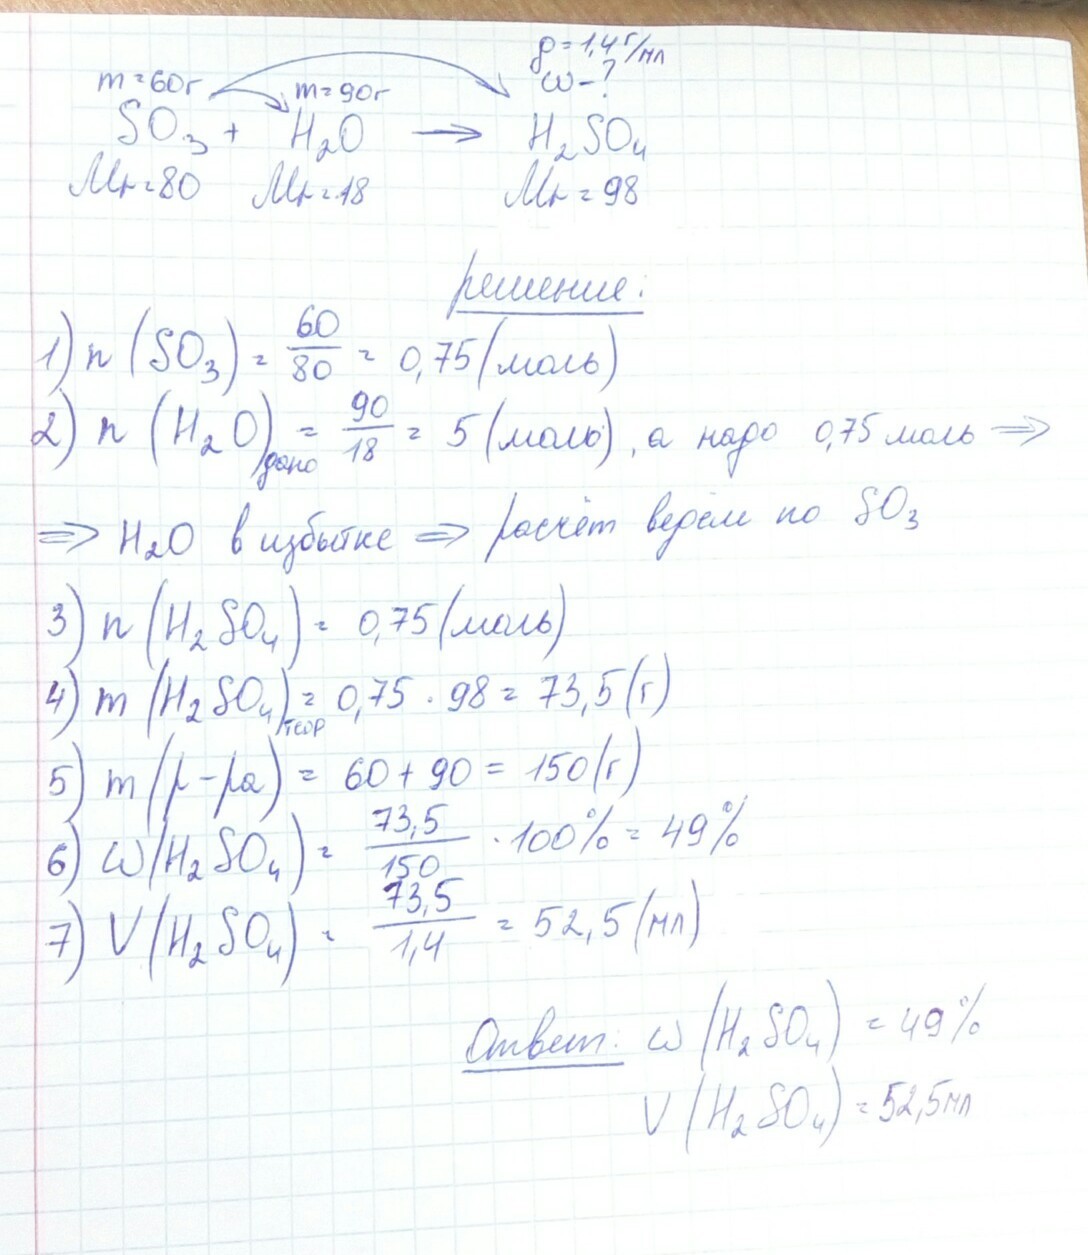 ρ = 1,4 г/мл
m = 60г m = 90г ω - ?
SO₃ + H₂O → H₂SO₄
Mr = 80 Mr = 18 Mr = 98
решение:
1) n (SO₃) = 60/80 = 0,75 (моль)
2) n (H₂O)дано = 90/18 = 5 (моль), а надо 0,75 моль ⇒
⇒ H₂O в избытке ⇒ расчёт ведём по SO₃
3) n (H₂SO₄) = 0,75 (моль)
4) m (H₂SO₄)теор = 0,75 · 98 = 73,5 (г)
5) m (р-ра) = 60 + 90 = 150 (г)
6) ω (H₂SO₄) = 73,5/150 · 100% = 49%
7) V (H₂SO₄) = 73,5/1,4 = 52,5 (мл)
Ответ: ω (H₂SO₄) = 49%
V (H₂SO₄) = 52,5 мл